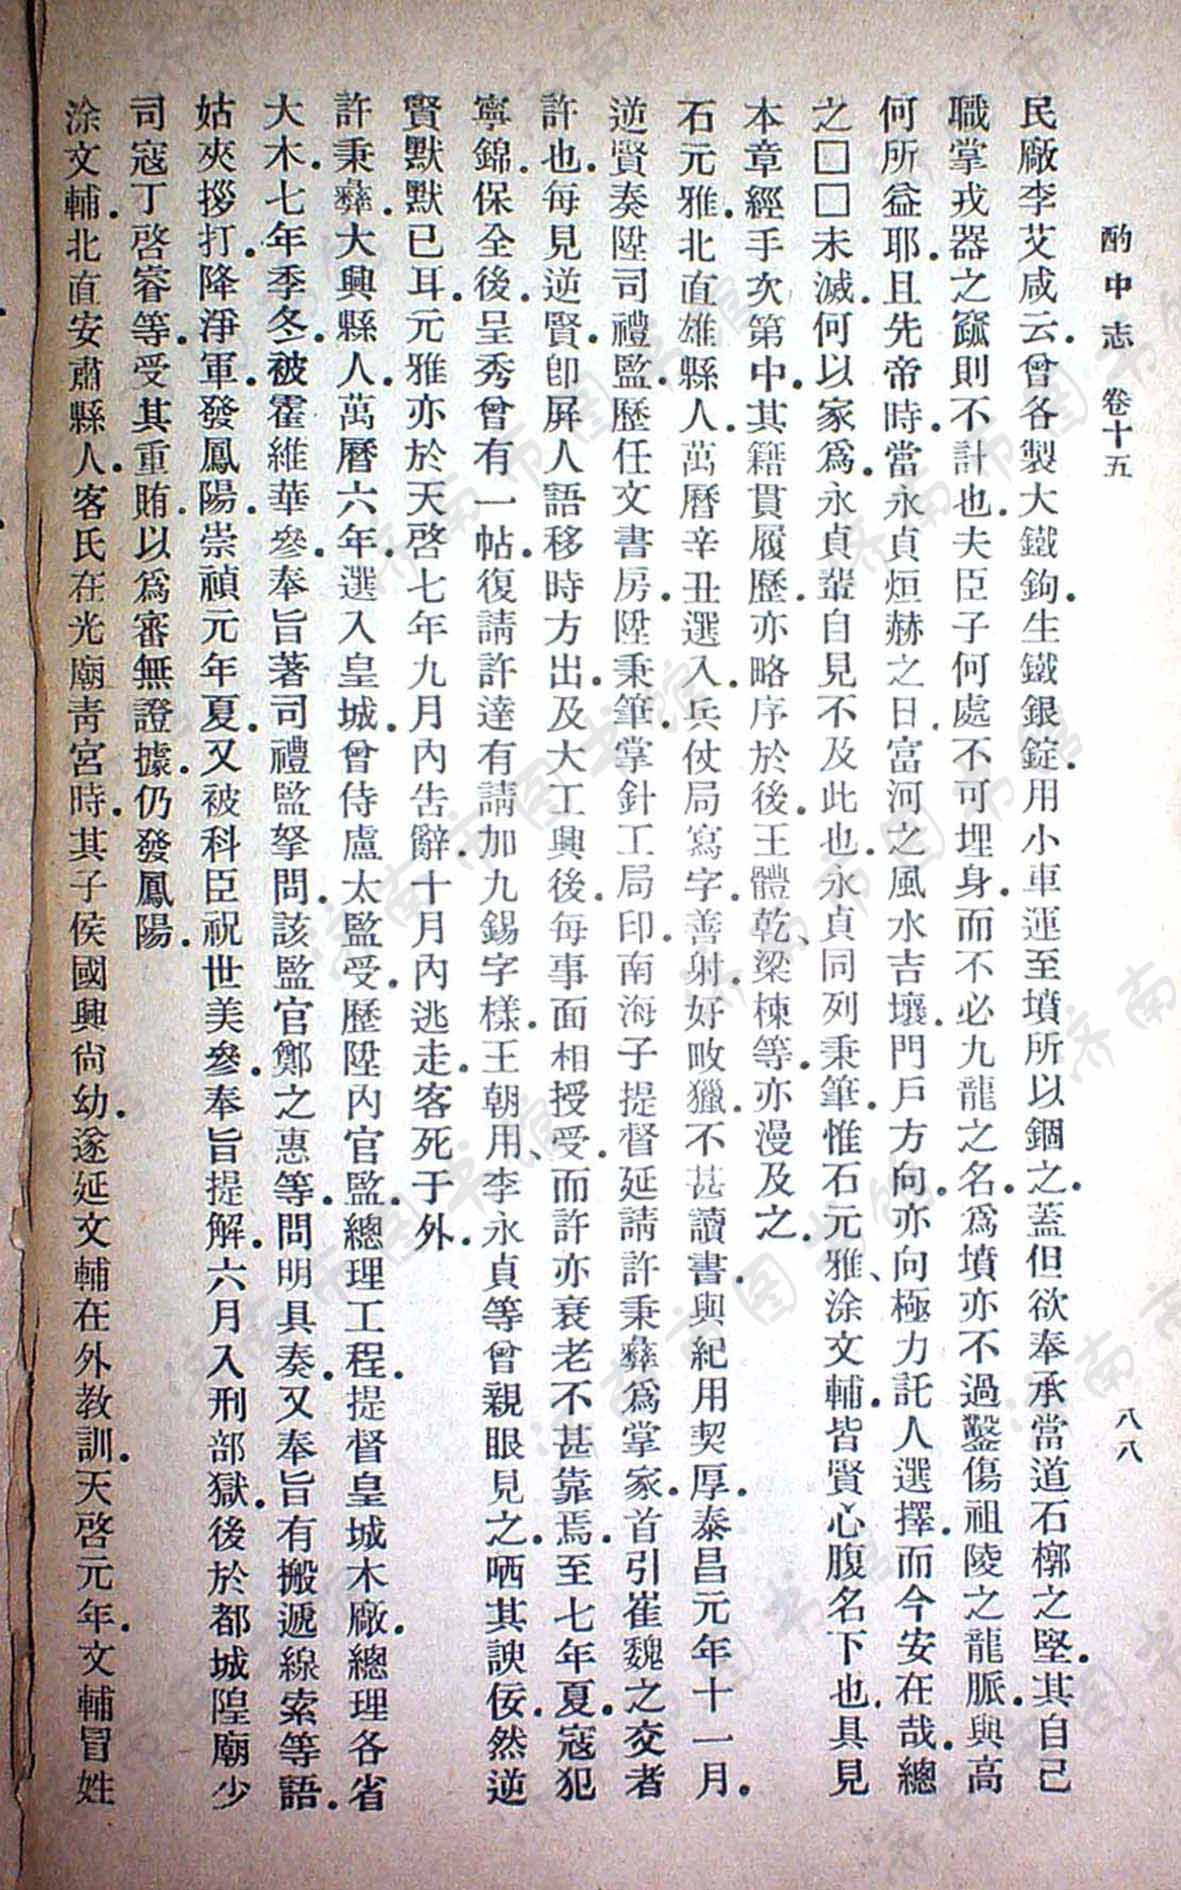 酌中志 卷十五 八八
民廠李艾咸云曾各製大鐵鉤生鐵銀錠用小車運至墳所以錮之蓋但欲奉承當道石槨之堅其自己
職掌戎器之窳則不計也夫臣子何處不可埋身而不必九龍之名爲墳亦不過鑿傷祖陵之龍脈與高
何所益耶且先帝時當永貞烜赫之日富河之風水吉壤門戶方向亦向極力託人選擇而今安在哉總
之□□未滅何以家爲永貞輩自見不及此也永貞同列秉筆惟石元雅、涂文輔皆賢心腹名下也具見
本章經手次第中其籍貫履歷亦略序於後王體乾、梁棟等亦漫及之
石元雅北直雄縣人萬曆辛丑選入兵仗局寫字善射好畋獵不甚讀書與紀用契厚泰昌元年十一月
逆賢奏陞司禮監歷任文書房陞秉筆掌針工局印南海子提督延請許秉彝爲掌家首引崔魏之交者
許也每見逆賢卽屏人語移時方出及大工興後每事面相授受而許亦衰老不甚靠焉至七年夏寇犯
寧錦保全後呈秀曾有一帖復請許達有請加九錫字樣王朝用、李永貞等曾親眼見之哂其諛佞然逆
賢默默已耳元雅亦於天啓七年九月內告辭十月內逃走客死于外
許秉彝大興縣人萬曆六年選入皇城曾侍盧太監受歷陞內官監總理工程提督皇城木廠總理各省
大木七年季冬被霍維華參奉旨著司禮監拏問該監官鄭之惠等問明具奏又奉旨有搬遞線索等語
姑夾拶打降淨軍發鳳陽崇禎元年夏又被科臣祝世美參奉旨提解六月入刑部獄後於都城隍廟少
司寇丁啓睿等受其重賄以爲審無證據仍發鳳陽
涂文輔北直安肅縣人客氏在光廟靑宮時其子侯國興尙幼遂延文輔在外敎訓天啓元年文輔冒姓